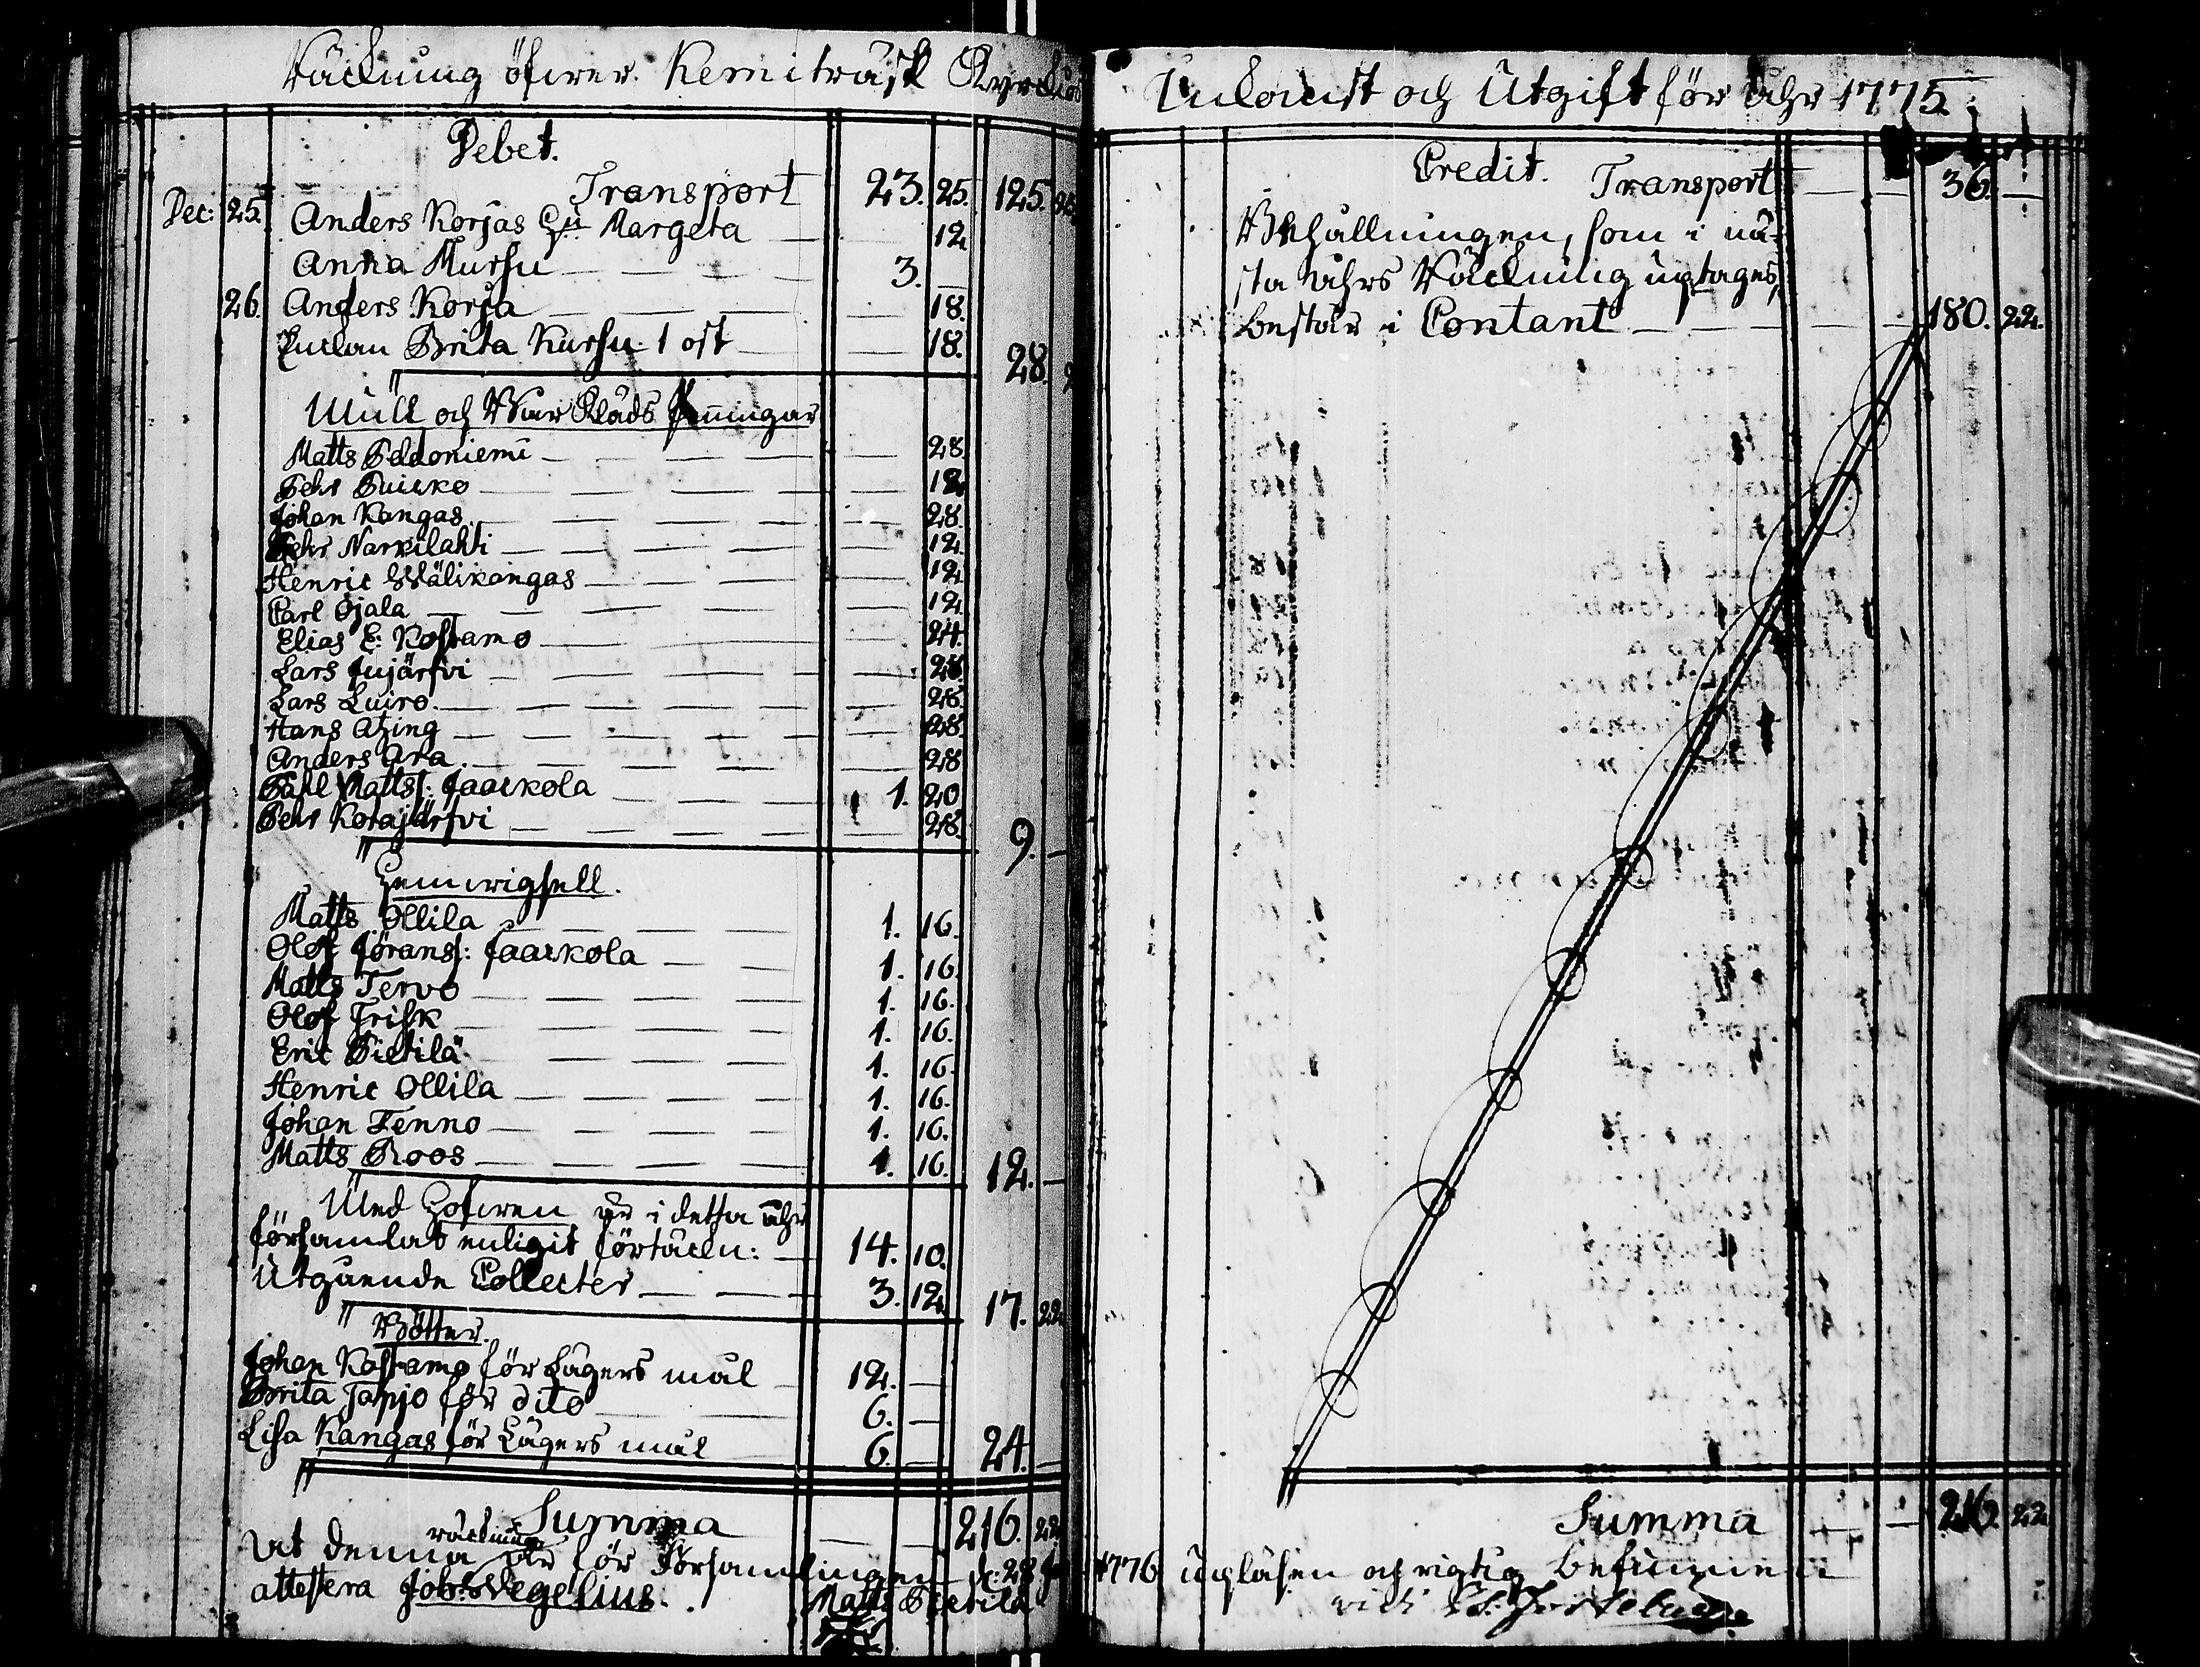 Räckning öfwer Kemiträsk Kyrckios
Debet.
Transport 23. 25. 125.
Dec: 25. Anders Korjas H:u Margeta 12
Anna Mursu 3.
26. Anders Korja 18.
Enckan Brita Kursu 1 ost 18. 28.
Mull och War Kläds Penningar
Matts Peldoniemi 28
Pehr Puicko 12
Johan Kangas 28
Pehr Narkilahti 12
Henric Wälikangas 12
Carl Ojala 12
Elias E: Kostamo 24.
Lars Jujärfvi
Lars Luiro 28.
Hans Atzing 28
Anders Ara 28
Påhl Mattss: Jaackola 1. 20
Pehr Kotajärfvi 28. 9.
Matts Ollila 1. 16.
Olof Jöranss: Jaackola 1. 16.
Matts Tervo 1. 16.
Olof Frisk 1. 16.
Eric Pietilä 1. 16.
Henric Ollila 1. 16.
Johan Tenno 1. 16.
Matts Roos 1. 16. 12.
Med Håfwen är i detta åhr
församlat enligit förtäckn: 14. 10.
Utgående Collecter 3. 12 17. 22
Böter.
Johan Kostamo för Lägers mål 12.
Brita Tapjo för dito 6.
Lisa Kangas för Lägers mål 6. 24.
Summa 216. 22
At denna räckning är för Församlingen d: 28
attestera Joh: Wegelius. Matts Pietilä
Inkomst och Utgift för Åhr 1775.
Credit. Transport 36.
Behållningen, som i nä-
sta åhrs Räckning uptages,
består i Contant 180. 22.
Summa 216. 22
1776 upläsen och rigtig befunnen
vidi